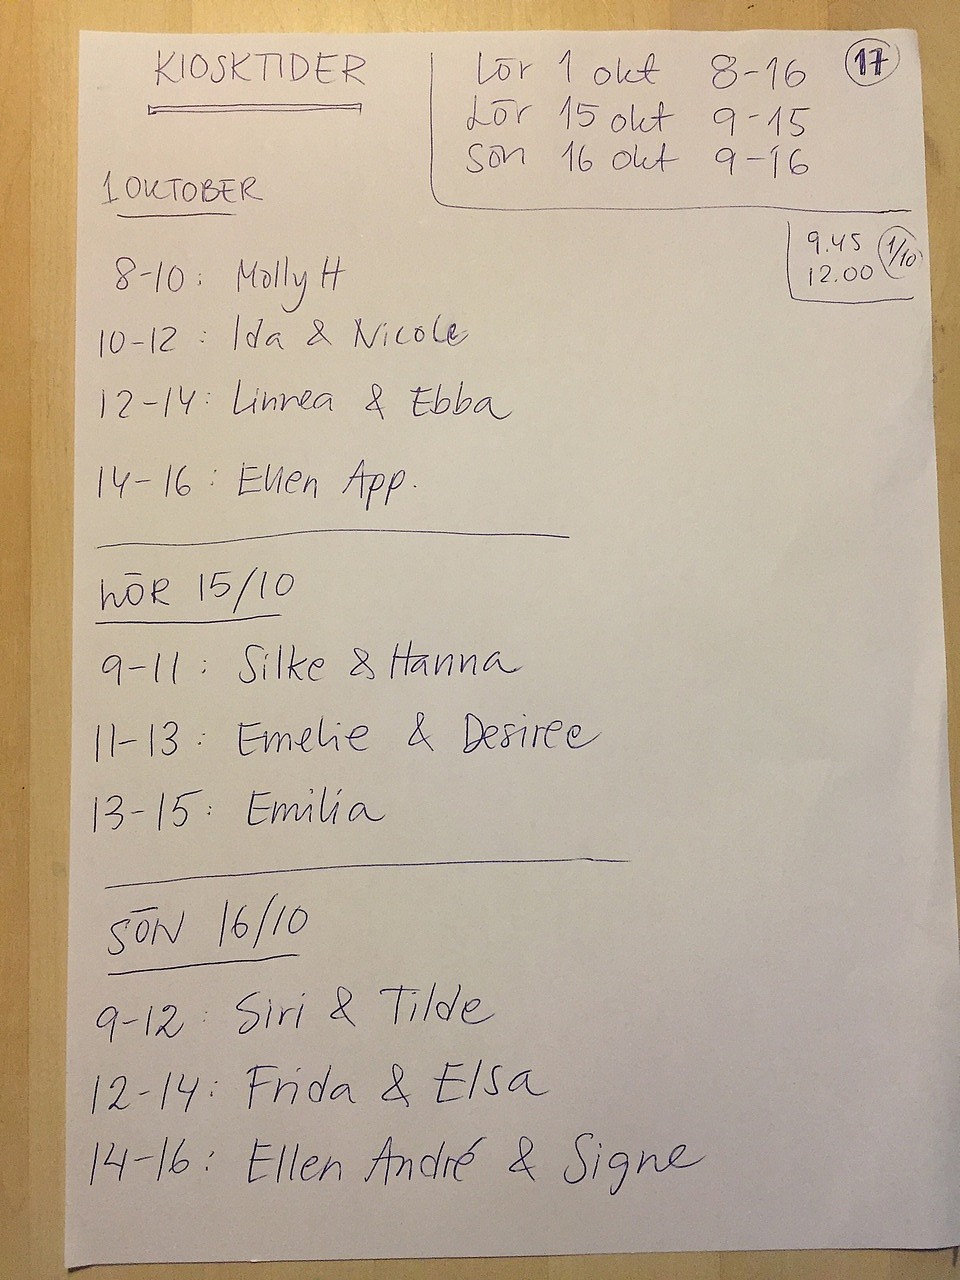 KIOSKTIDER
Lör 1 okt 8-16
Lör 15 okt 9-15
Sön 16 okt 9-16
17
9.45
12.00
1/10
1 OKTOBER
8-10: Molly H
10-12: Ida & Nicole
12-14: Linnea & Ebba
14-16: Ellen App.
LÖR 15/10
9-11: Silke & Hanna
11-13: Emelie & Desiree
13-15: Emilia
SÖN 16/10
9-12: Siri & Tilde
12-14: Frida & Elsa
14-16: Ellen André & Signe